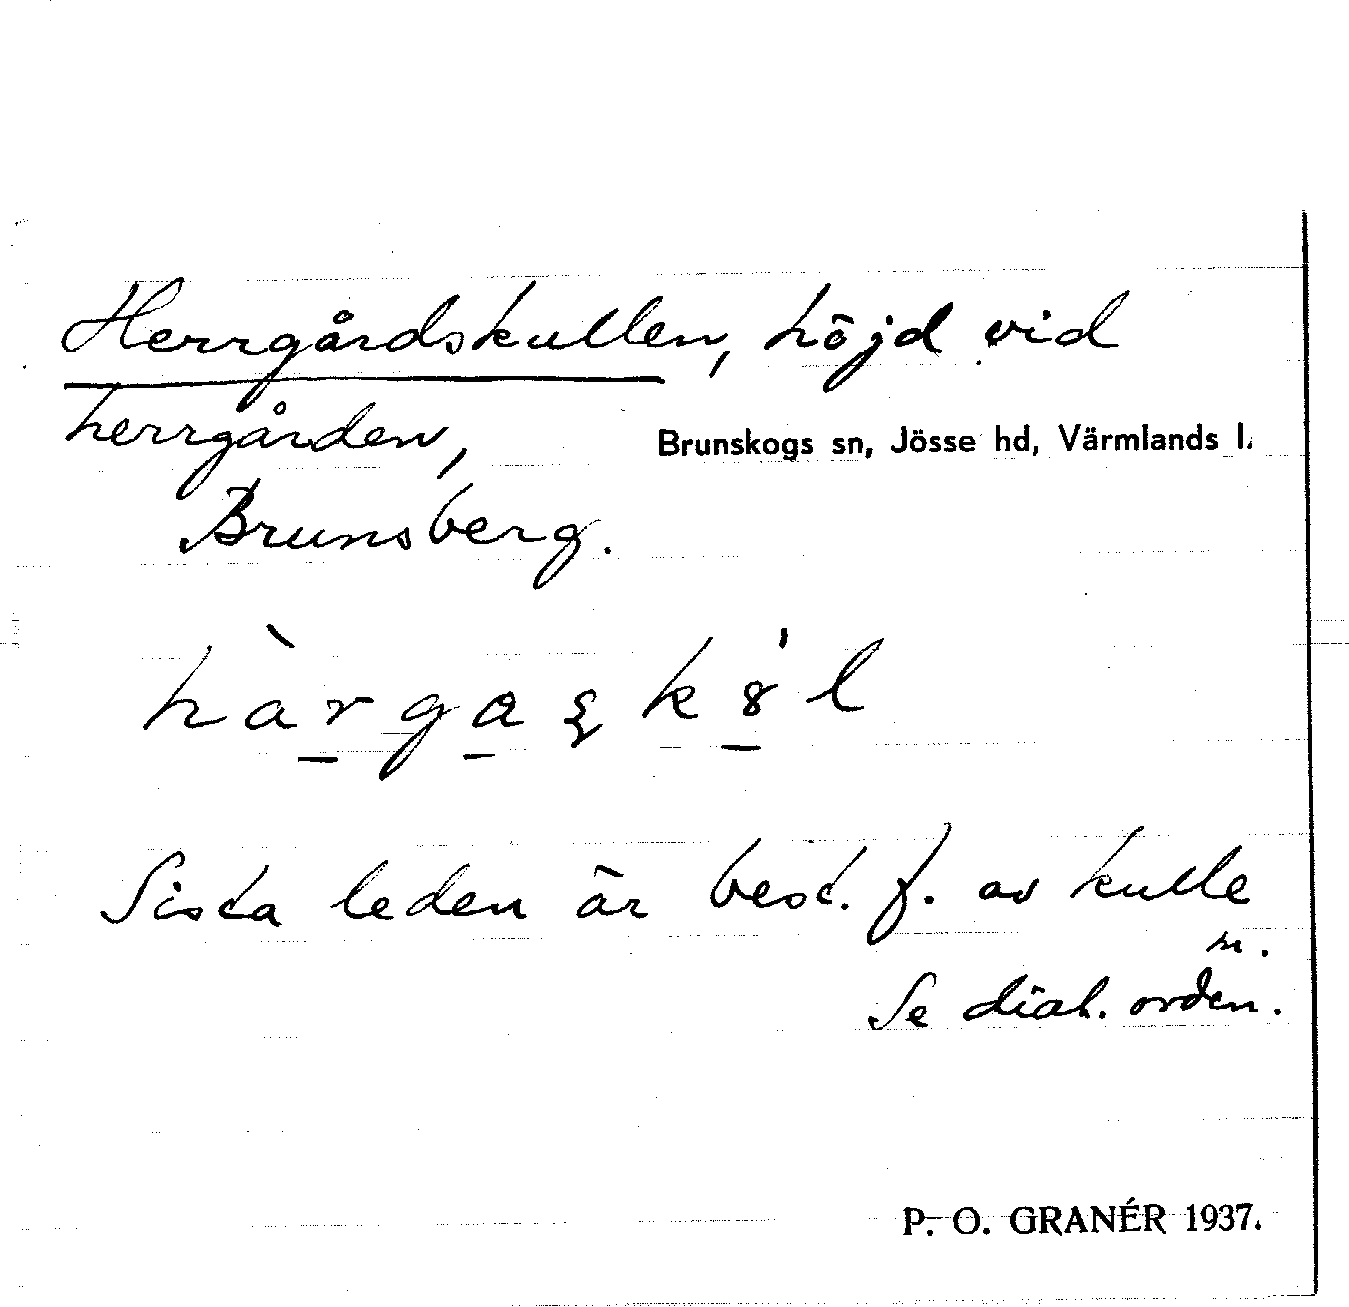 Herrgårdskullen, höjd vid
herrgården,
Brunskogs sn, Jösse hd, Värmlands l.
Brunsberg.
Sista leden är best. f. av kulle
m.
Se dial. orden.
P. O. GRANÉR 1937.